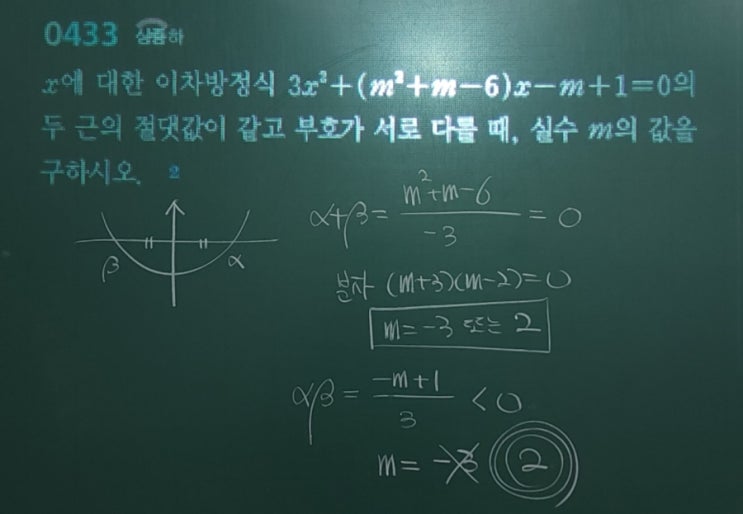 0433 상중하
x에 대한 이차방정식 3x²+(m²+m-6)x-m+1=0의
두 근의 절댓값이 같고 부호가 서로 다를 때, 실수 m의 값을
구하시오. 2
α+β = (m²+m-6)/-3 = 0
β α
분자 (m+3)(m-2)=0
m=-3 또는 2
αβ = (-m+1)/3 < 0
m= -3 2